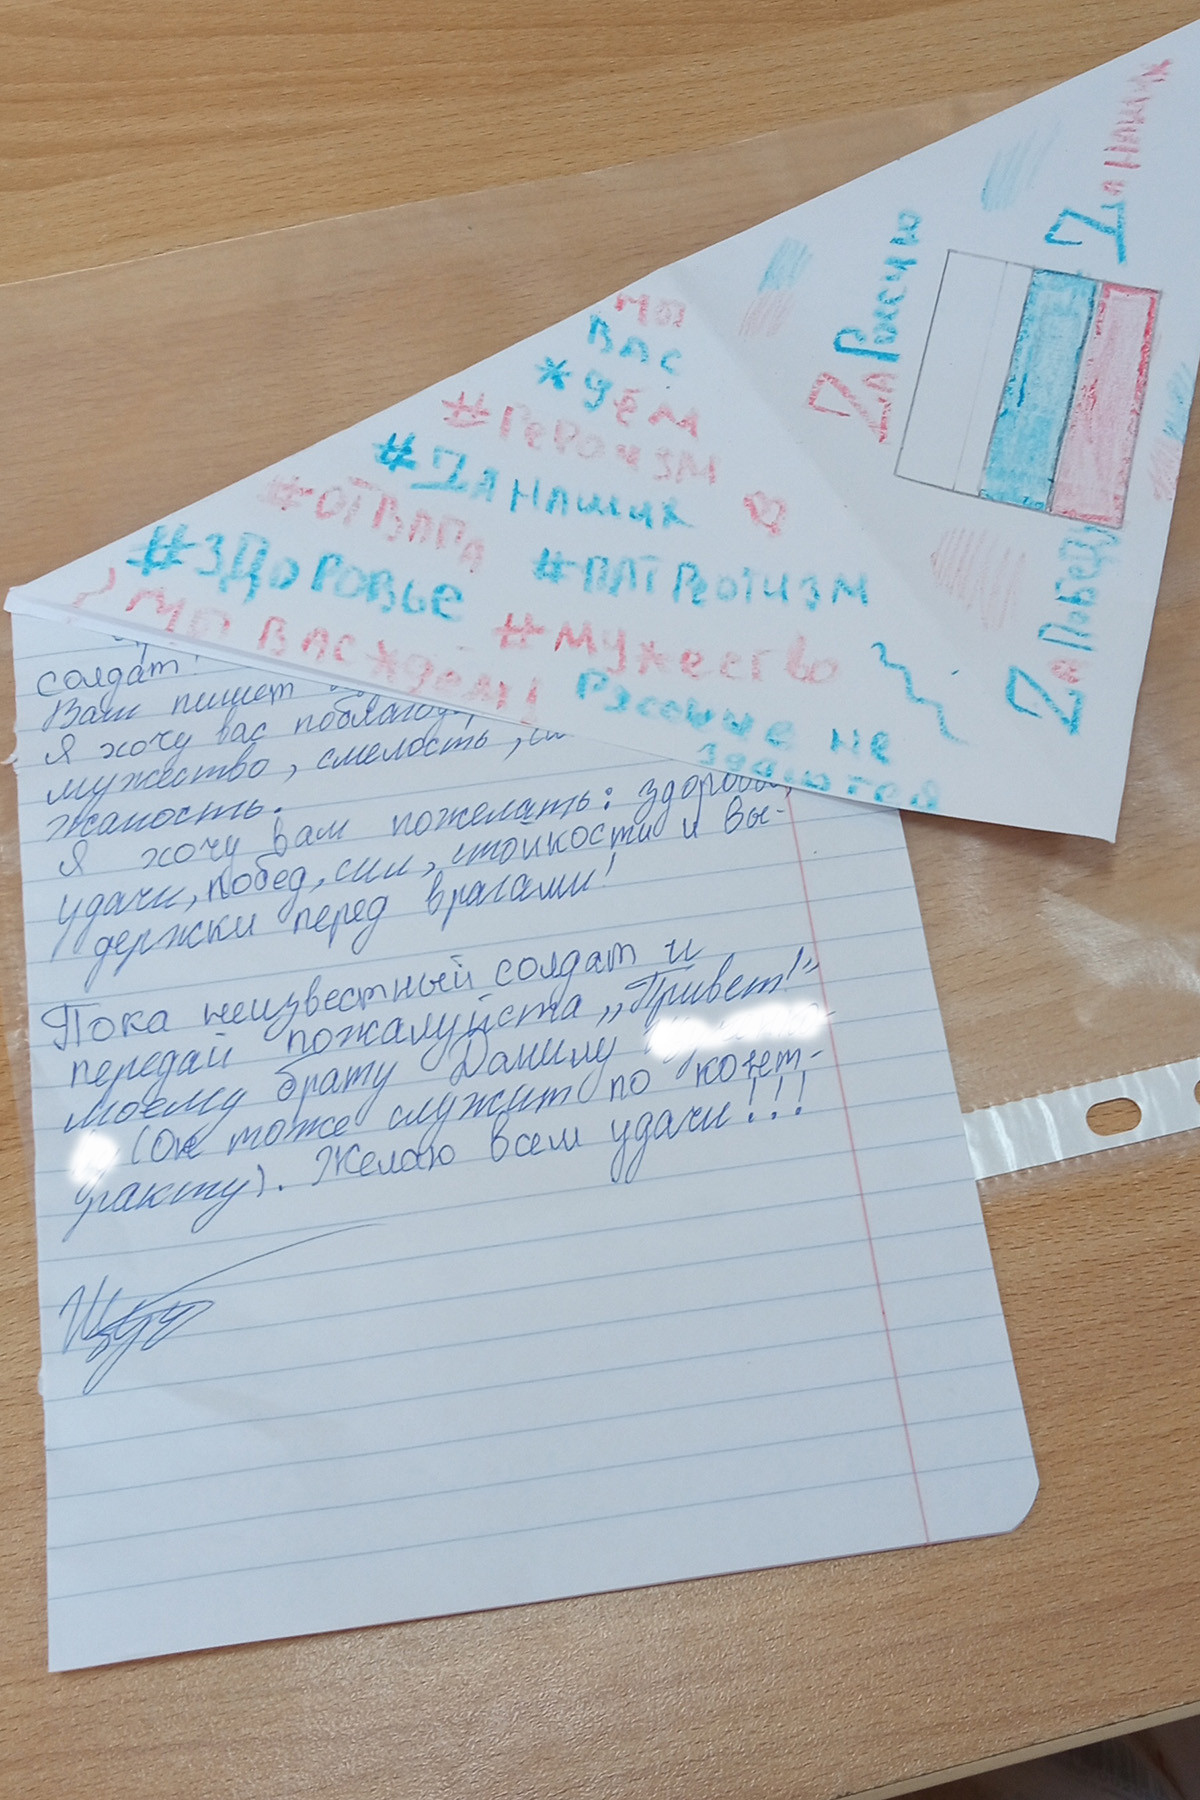 мы
вас
ждём
#Героизм
#Zа наших
#отвага
#здоровье
#патреотизм
мы вас ждём!
#мужество
Рзсские не
здаются
Zа Россию
Zа наших
Zа Победу
солдат!
Вам пишет
Я хочу вас поблагодар
мужество, смелость,
жаность.
Я хочу вам пожелать: здоровья,
удачи, побед, сил, стойкости и вы-
держки перед врагами!
Пока неизвестный солдат и
передай пожалуйста „Привет!”
моему брату Данилу
(Он тоже служит по конт-
ракту). Желаю всем удачи!!!